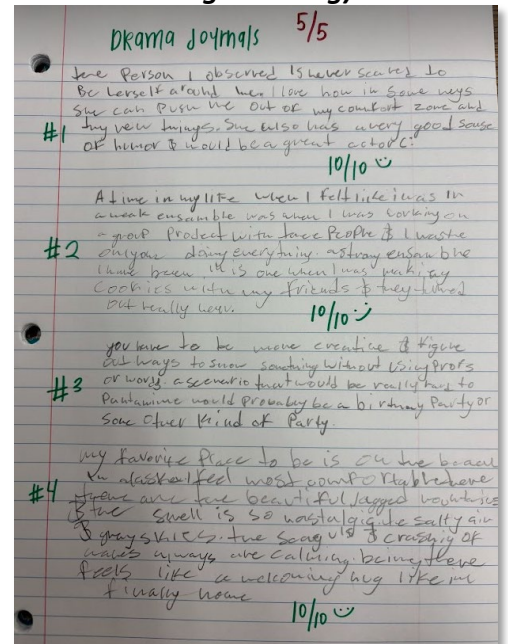 Drama Journals 5/5
the Person I observed is never scared to
Be herself around me. I love how in some ways
She can push me out of my comfort zone and
#1 try new things. She also has a very good sense
of humor & would be a great actor C:
10/10
A time in my life when I felt like i was in
a weak ensamble was when I was working on
a group Prodect with three People & I was the
#2 only one doing everything. a strong ensamble
I have been in is one when I was making
Cookies with my friends & they turned
out really
10/10
you have to be more creative & figure
out ways to show somthing without using Props
#3 or words. a scenerio that would be really hard to
Pantamime would Probably be a birthday Party or
Some other Kind of Party.
my favorite Place to be is on the beach
in alaska I feel most comfortable there
#4 there are the beautiful jagged mountains
& the smell is so nostalgic the salty air
& gray skies. the seaguls & crashing of
waves always are calming. being there
feels like a welcoming hug like im
finally home
10/10